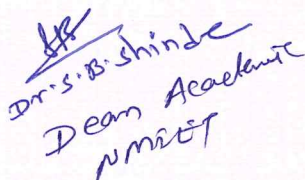 Dr. S. B. Shinde
Dean Academic
NMIET